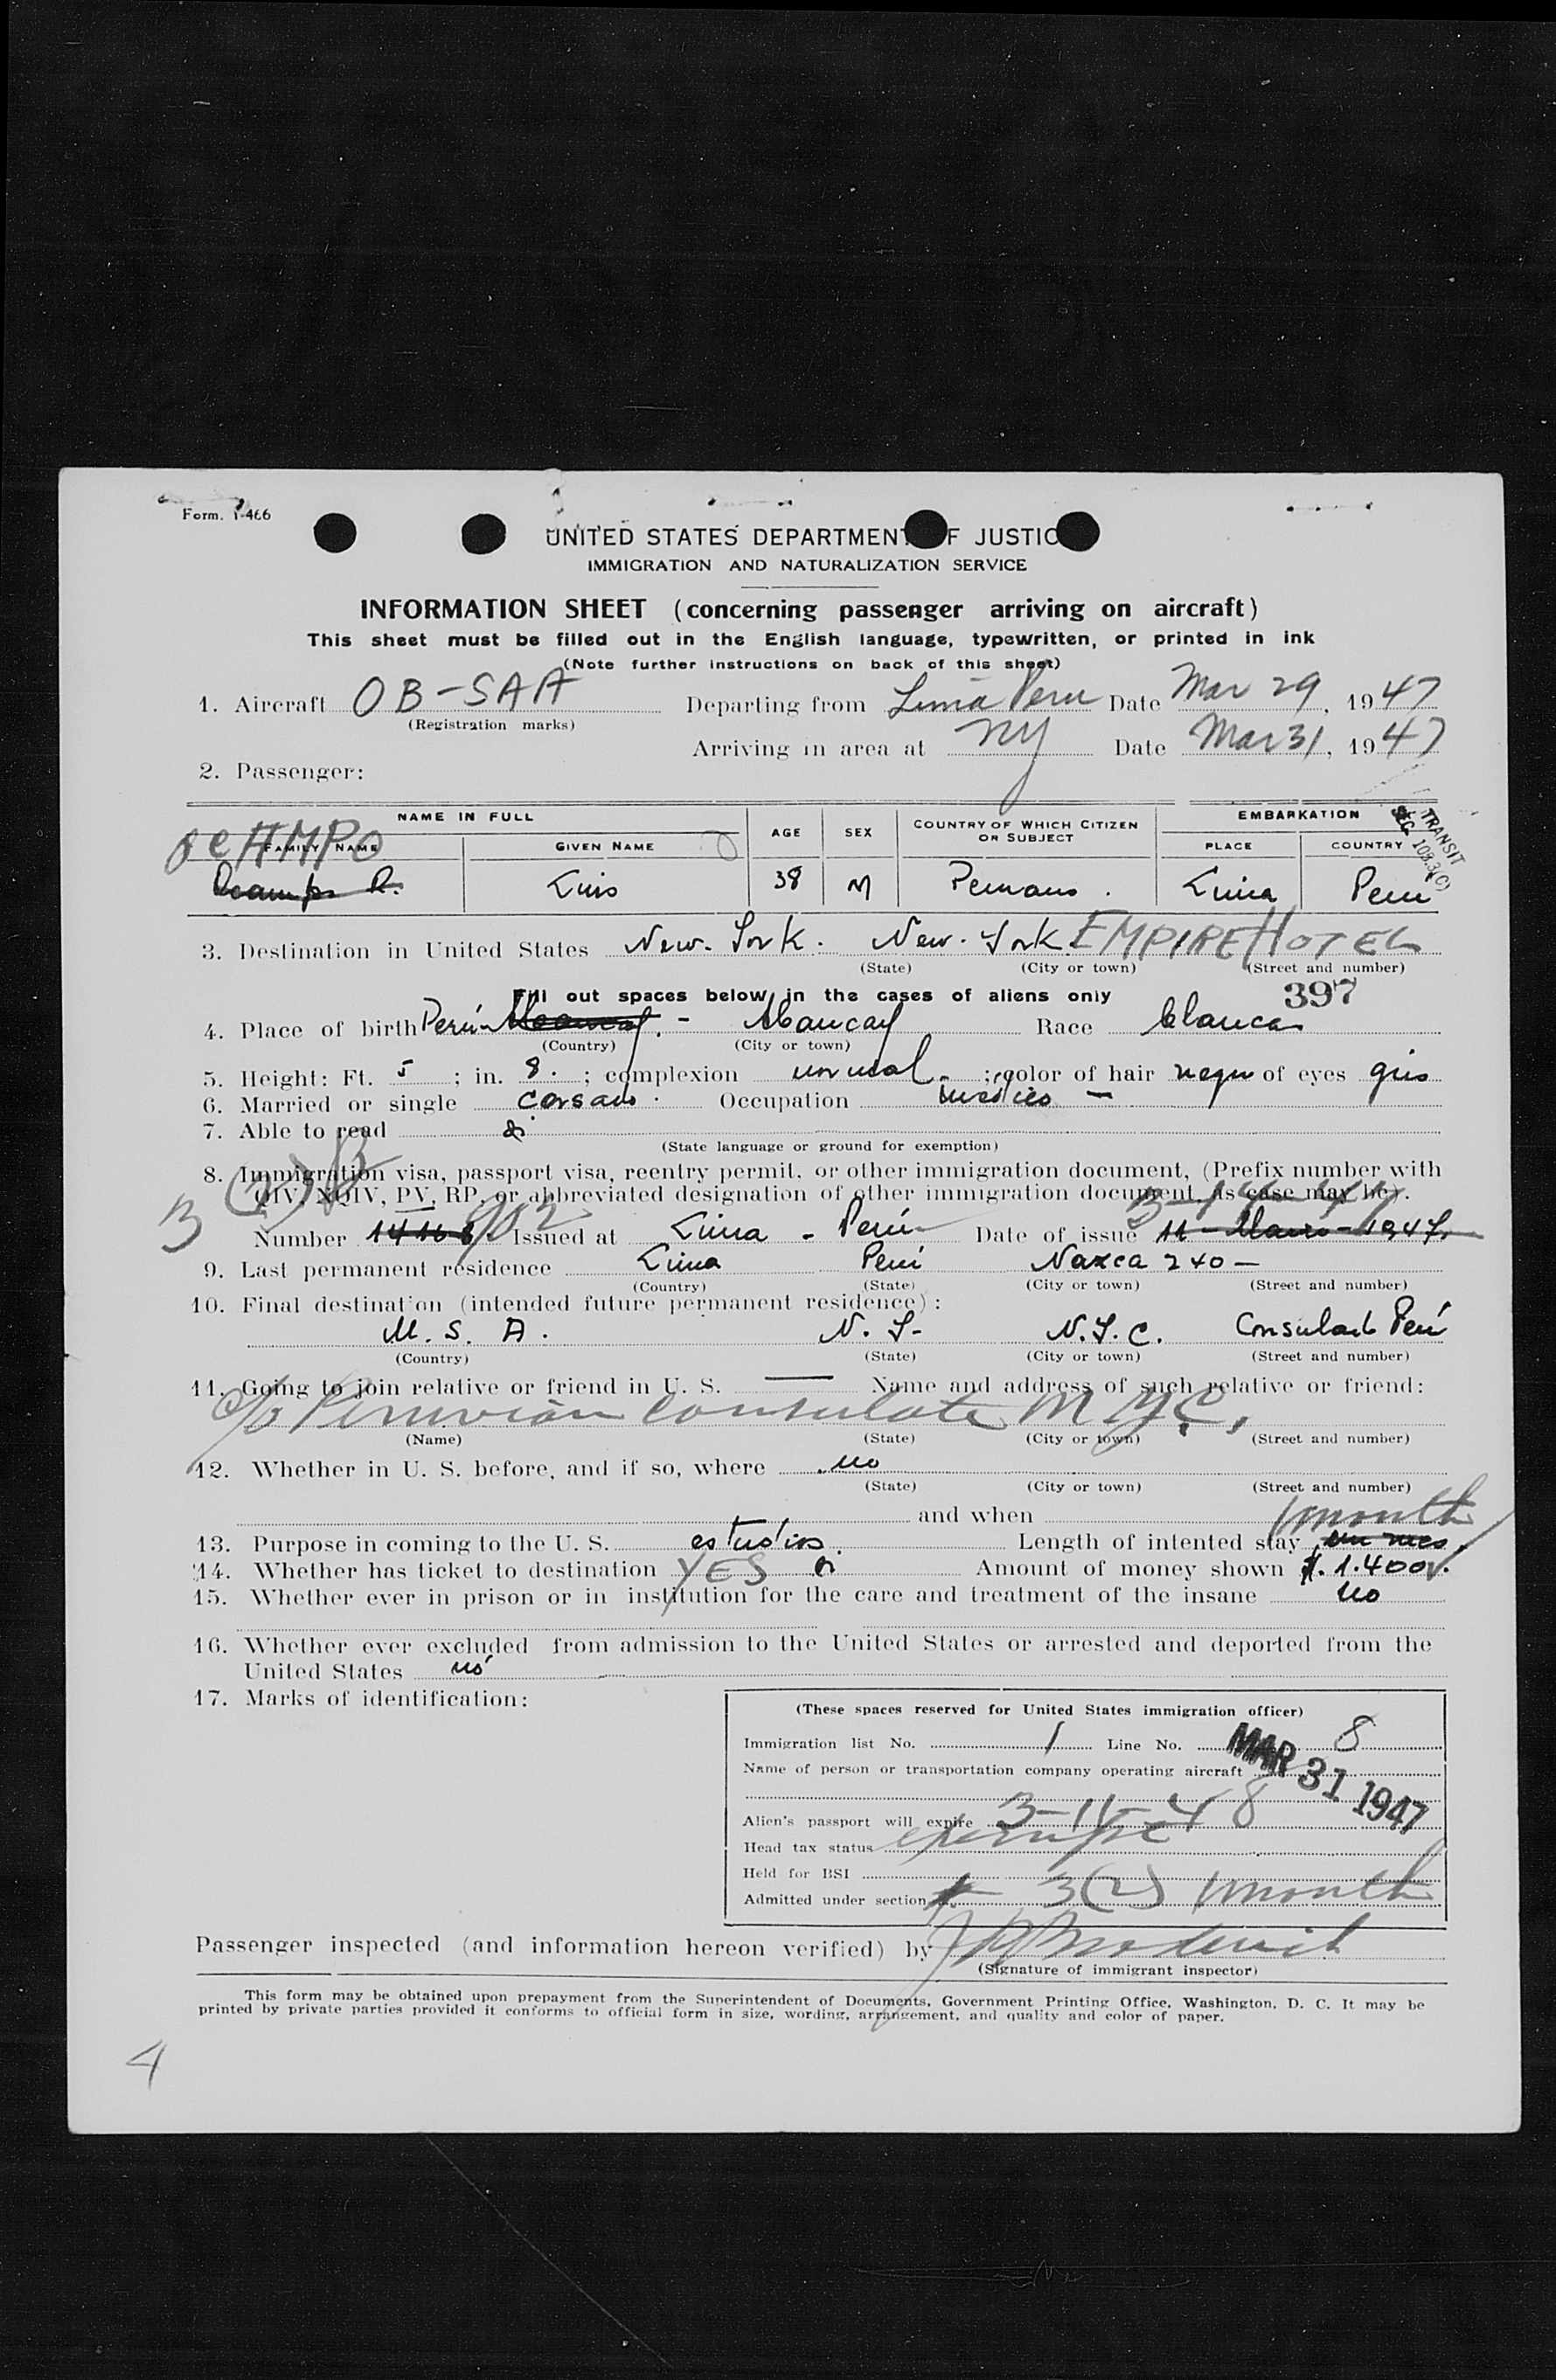 Form. I-466
UNITED STATES DEPARTMENT OF JUSTIC
IMMIGRATION AND NATURALIZATION SERVICE
INFORMATION SHEET (concerning passenger arriving on aircraft)
This sheet must be filled out in the English language, typewritten, or printed in ink
(Note further instructions on back of this sheet)
1. Aircraft OB-SAA Departing from Lima Peru Date Mar 29, 1947
(Registration marks)
Arriving in area at NY Date Mar 31, 1947
2. Passenger:
NAME IN FULL AGE SEX COUNTRY OF WHICH CITIZEN OR SUBJECT EMBARKATION
TRANSIT SEC. 103.3(C)
OCAMPO
FAMILY NAME GIVEN NAME PLACE COUNTRY
Ocampo R. Luis 38 M Peruano. Lima Perú
3. Destination in United States New-York. New-York EMPIRE HOTEL
(State) (City or town) (Street and number)
Fill out spaces below in the cases of aliens only 397
4. Place of birth Perú - Abancay. - Abancay Race blanca
(Country) (City or town)
5. Height: Ft. 5; in. 8.; complexion normal; color of hair negro of eyes gris
6. Married or single casado. Occupation médico -
7. Able to read si
(State language or ground for exemption)
8. Immigration visa, passport visa, reentry permit, or other immigration document, (Prefix number with
QIV, NQIV, PV, RP, or abbreviated designation of other immigration document, as case may be).
3 (2)
Number 14168 902 Issued at Lima - Perú Date of issue 11-Marzo-1947
9. Last permanent residence Lima Perú Nazca 240-
(Country) (State) (City or town) (Street and number)
10. Final destination (intended future permanent residence):
U. S. A. N. Y- N.Y.C. Consulado Perú
(Country) (State) (City or town) (Street and number)
11. Going to join relative or friend in U. S. — Name and address of such relative or friend:
c/o Peruvian Consulate N Y C.
(Name) (State) (City or town) (Street and number)
12. Whether in U. S. before, and if so, where no
(State) (City or town) (Street and number)
and when
1 month
13. Purpose in coming to the U. S. estudios. Length of intented stay un mes.
14. Whether has ticket to destination YES Amount of money shown $. 1.400.
15. Whether ever in prison or in institution for the care and treatment of the insane no
16. Whether ever excluded from admission to the United States or arrested and deported from the
United States no
17. Marks of identification:
(These spaces reserved for United States immigration officer)
Immigration list No. 1 Line No. 8
MAR 31 1947
Name of person or transportation company operating aircraft
Alien's passport will expire 3-11-48
Head tax status exempt
Held for BSI
Admitted under section 3(2) 1 month
Passenger inspected (and information hereon verified) by
(Signature of immigrant inspector)
This form may be obtained upon prepayment from the Superintendent of Documents, Government Printing Office, Washington, D. C. It may be
printed by private parties provided it conforms to official form in size, wording, arrangement, and quality and color of paper.
4